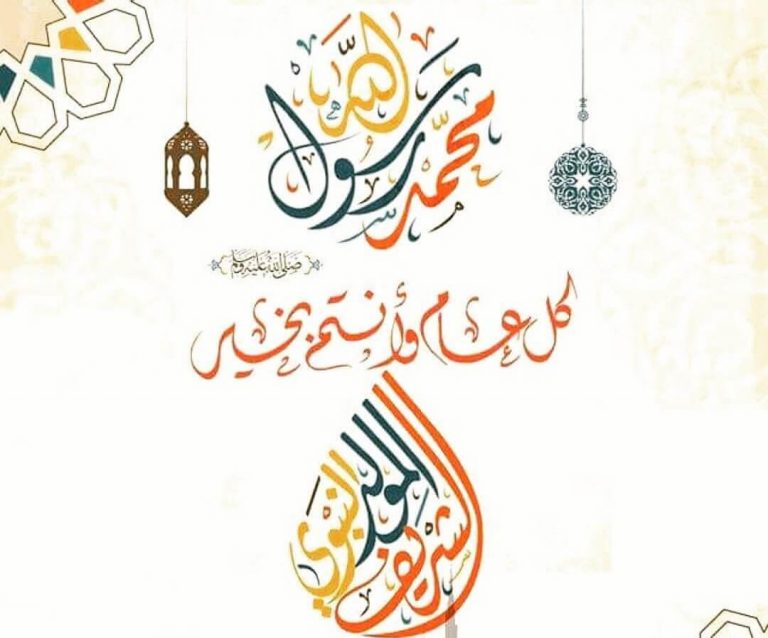 محمد رسول الله
صلى الله عليه وسلم
كل عام وأنتم بخير
المولد النبوي الشريف